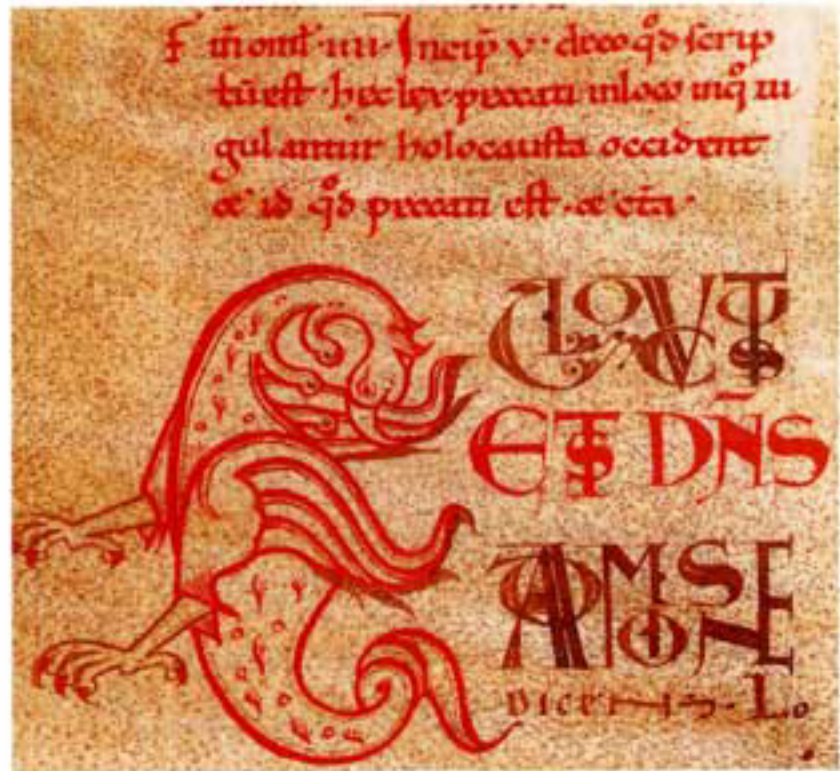 F̄ īn omł · iiii · Incip̄ v · de eo qͦd scrip
tū est · hec lex peccati in loco in qͦ iu
gulantur holocausta occident
& id qͦd peccati est · & cet̄a ·
ET LOCVTVS
EST DN̄S
AD MOYSEN
DICENS · Lo